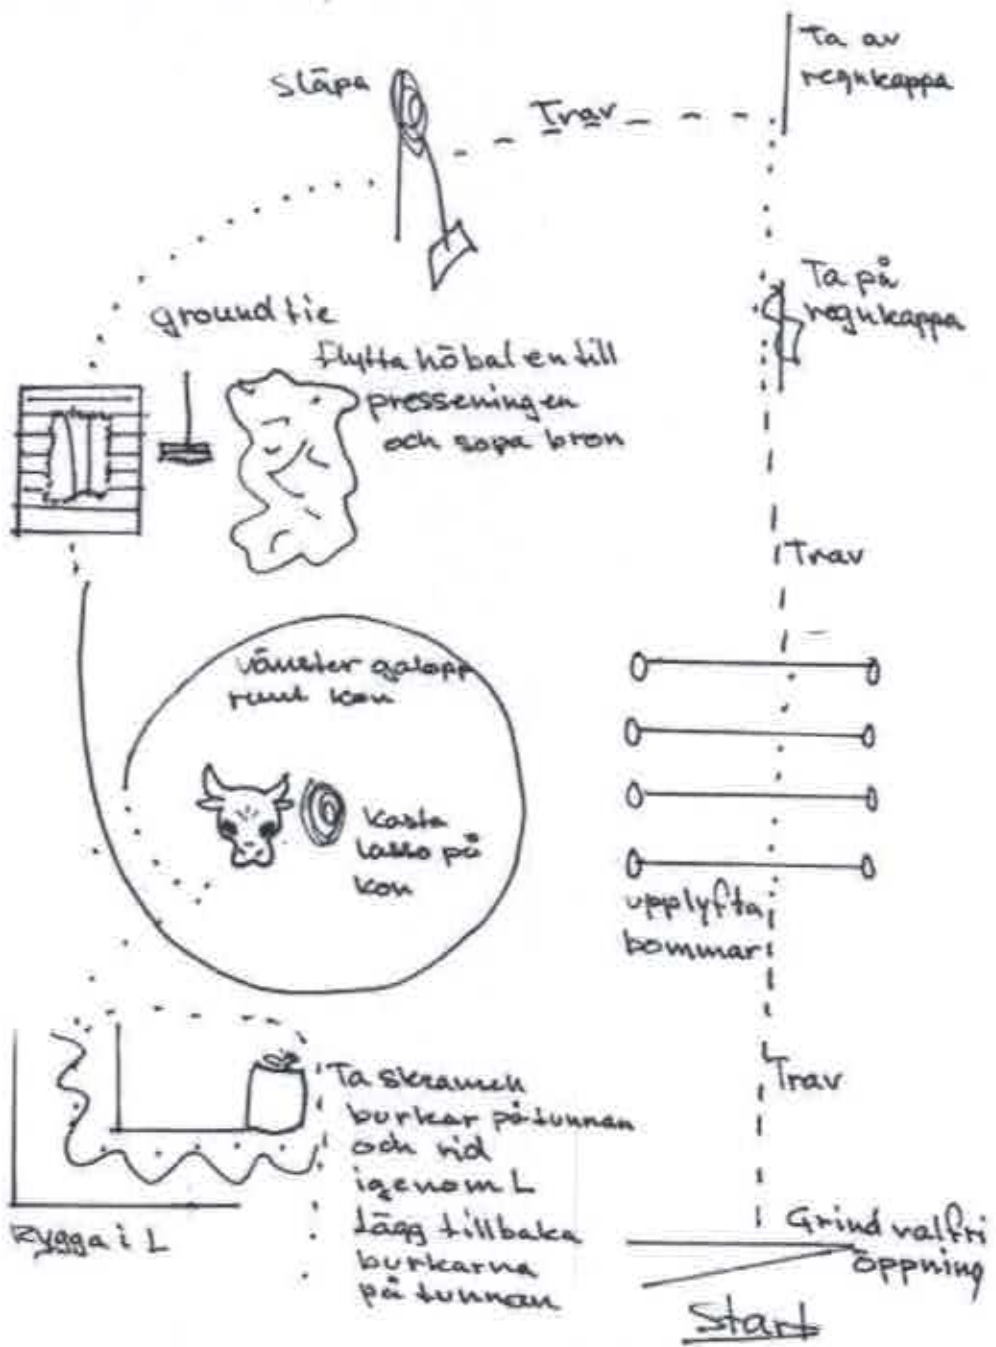 Ta av
regnkappa
släpa
Trav
Ta på
regnkappa
ground tie
flytta höbalen till
presseningen
och sopa bron
Trav
vänster galopp
runt kon
kasta
lasso på
kon
upplyfta
bommar
Trav
Ta skramel
burkar på tunnan
och rid
igenom L
Lägg tillbaka
burkarna
på tunnan
Rygga i L
Grind valfri
öppning
Start